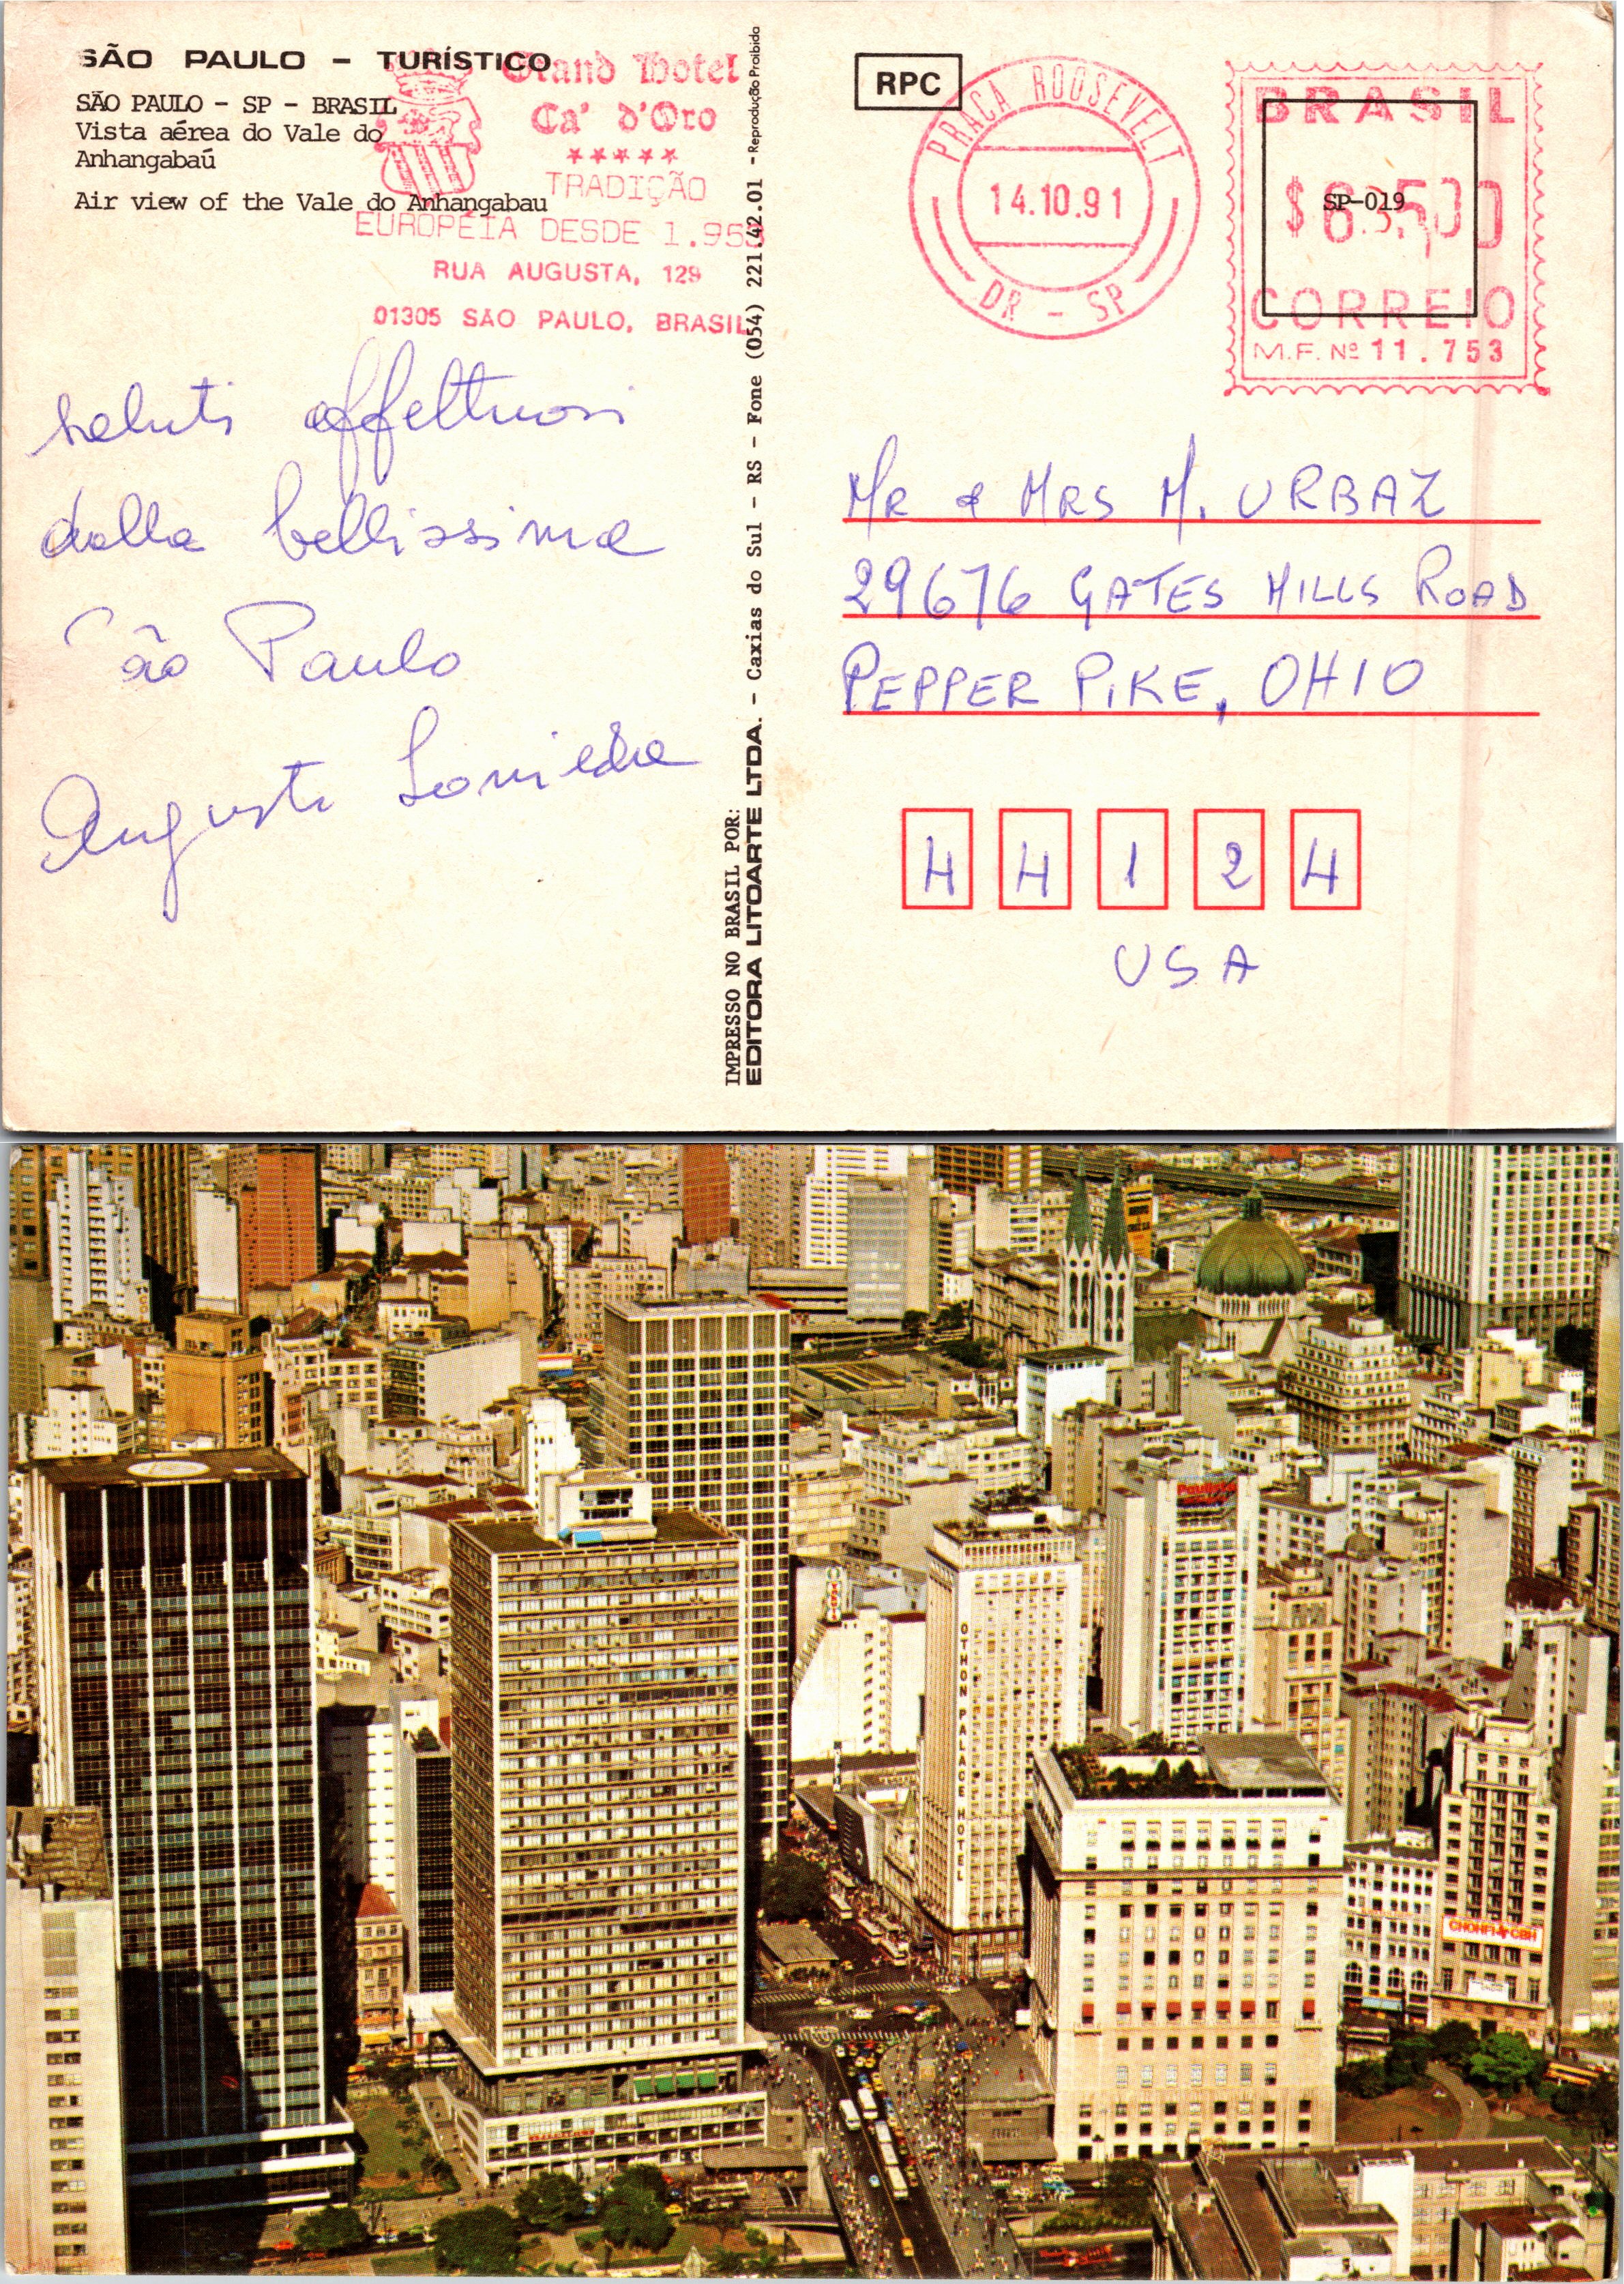 SÃO PAULO - TURÍSTICO
SÃO PAULO - SP - BRASIL
Vista aérea do Vale do
Anhangabaú
Air view of the Vale do Anhangabau
Grand Hotel
Ca' d'Oro
★★★★★
TRADIÇÃO
EUROPÉIA DESDE 1.953
RUA AUGUSTA, 129
01305 SÃO PAULO, BRASIL
saluti affettuosi
dalla bellissima
São Paulo
Augusto
IMPRESSO NO BRASIL POR:
EDITORA LITOARTE LTDA. - Caxias do Sul - RS - Fone (054) 221.42.01 - Reprodução Proibida
RPC
PRAÇA ROOSEVELT
14.10.91
DR - SP
BRASIL
SP-019
CORREIO
M.F. Nº 11.753
MR & MRS M. URBAZ
29676 GATES MILLS ROAD
PEPPER PIKE, OHIO
44124
USA
Paulista
OTHON PALACE HOTEL